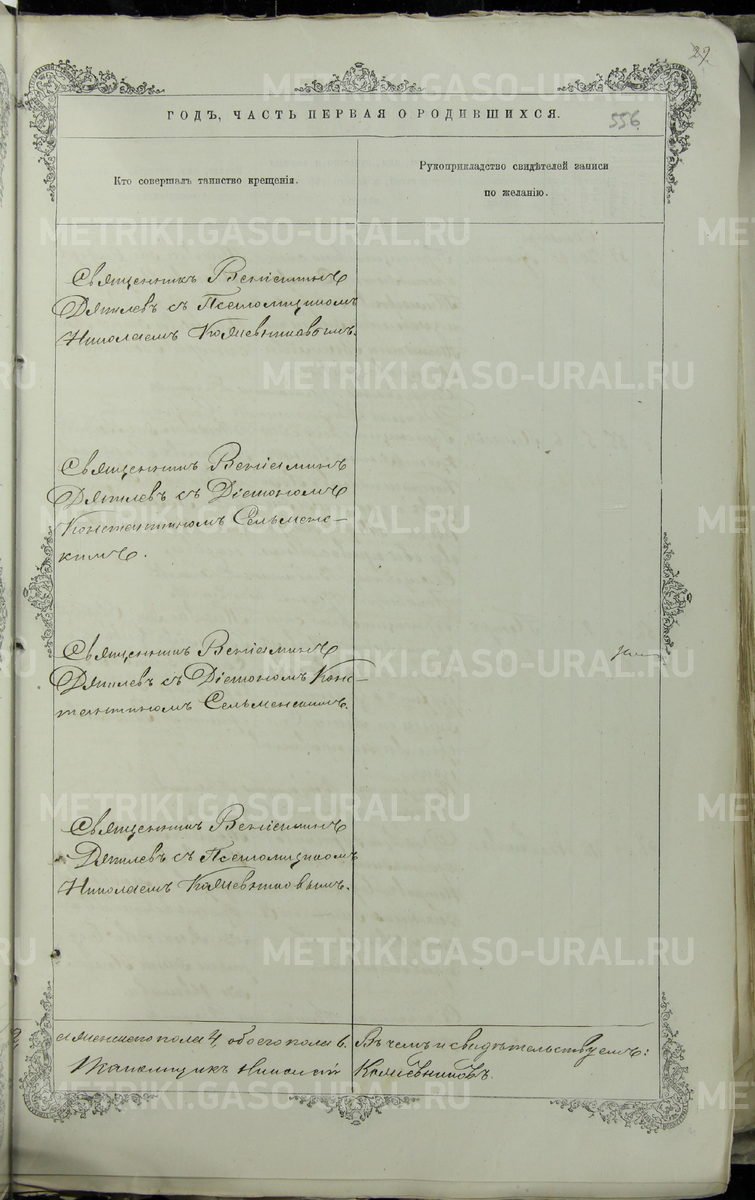 29.
ГОДЪ, ЧАСТЬ ПЕРВАЯ О РОДИВШИХСЯ.
556
Кто совершалъ таинство крещенія.
Рукоприкладство свидѣтелей записи
по желанію.
Священникъ Веніаминъ
Дягилевъ съ Псаломщикомъ
Николаемъ
Священникъ Веніаминъ
Дягилевъ съ Діакономъ
Константиномъ Сельменс-
кимъ.
Священникъ Веніаминъ
Дягилевъ съ Діакономъ Конс-
тантиномъ Сельменскимъ.
Священникъ Веніаминъ
Дягилевъ съ Псаломщикомъ
Николаемъ
а женскаго пола 4 обоего пола 6. Въ чемъ и свидѣтельствуемъ:
Псаломщикъ Николай
METRIKI.GASO-URAL.RU